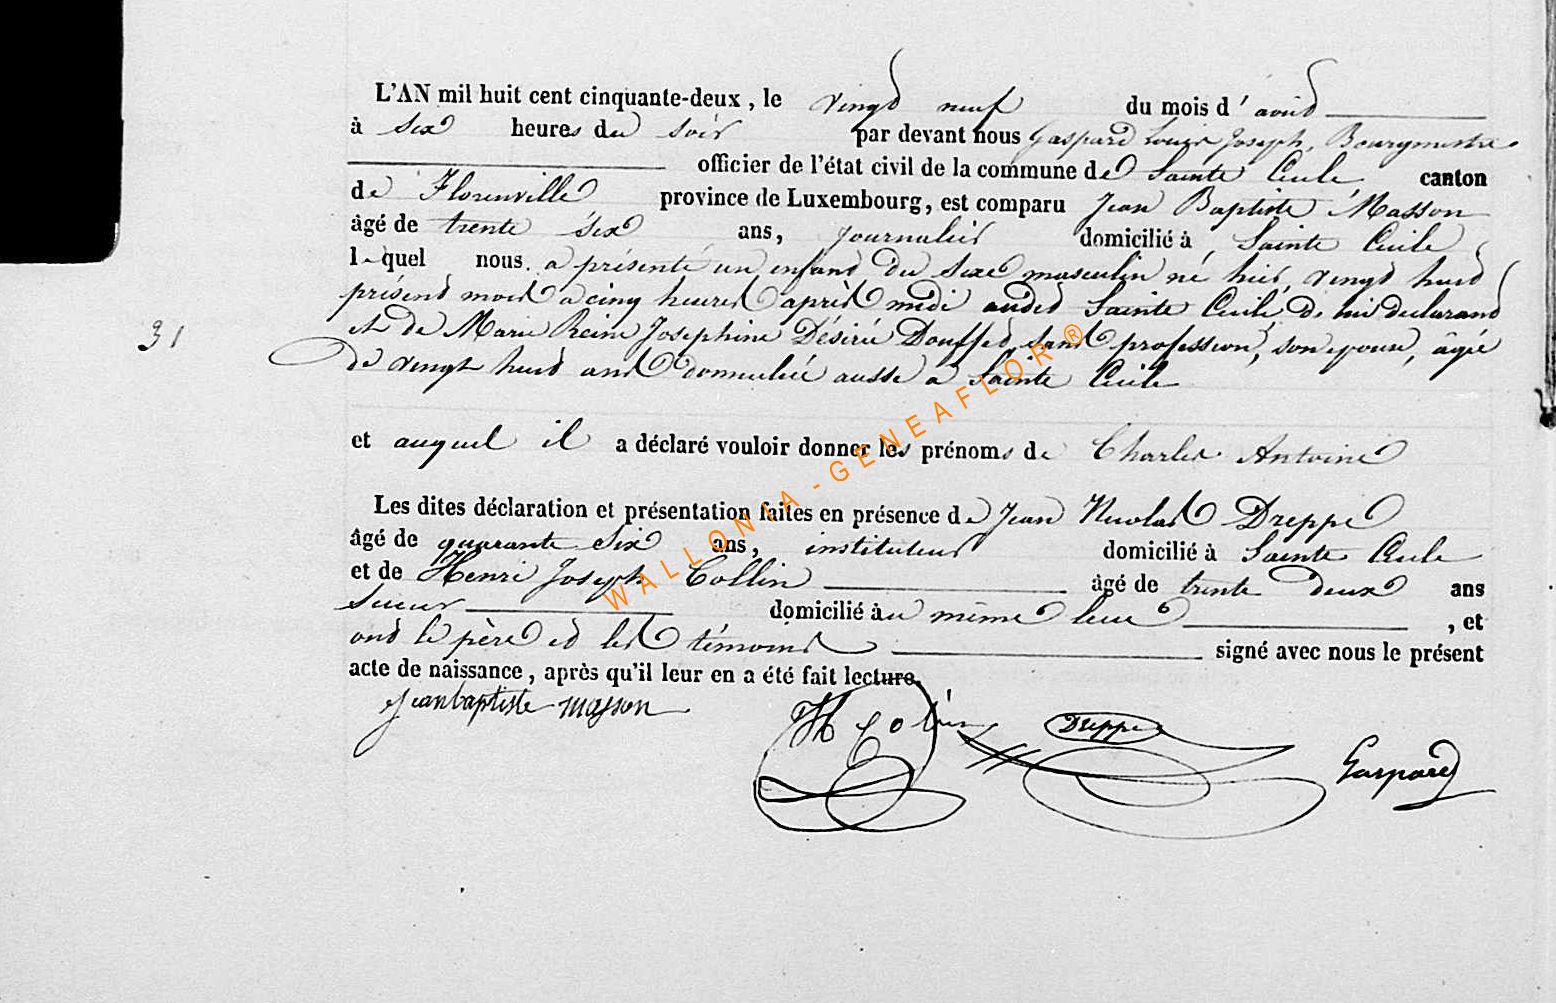 L'AN mil huit cent cinquante-deux, le vingt neuf du mois d'août
à six heures du soir par devant nous Gaspard Louis Joseph, Bourgmestre
officier de l'état civil de la commune de Sainte Cecile canton
de Florenville province de Luxembourg, est comparu Jean Baptiste Masson
âgé de trente six ans, journalier domicilié à Sainte Cecile
lequel nous a présenté un enfant du sexe masculin né hier, vingt huit
présent mois à cinq heures après midi audit Sainte Cecile de lui declarant
31
et de Marie Reine Josephine Désirée Douffet, sans profession, son epouse, âgée
de vingt huit ans domiciliée aussi a Sainte Cecile
et auquel il a déclaré vouloir donner les prénoms de Charles Antoine
Les dites déclaration et présentation faites en présence de Jean Nicolas Dreppe
âgé de quarante six ans, instituteur domicilié à Sainte Cecile
et de Henri Joseph Collin âgé de trente deux ans
domicilié au même lieu, et
ont le père et les témoins signé avec nous le présent
acte de naissance, après qu'il leur en a été fait lecture.
jean baptiste masson
H J Colin
Dreppe
Gaspard
WALLONIA - GENEAFLOR ®